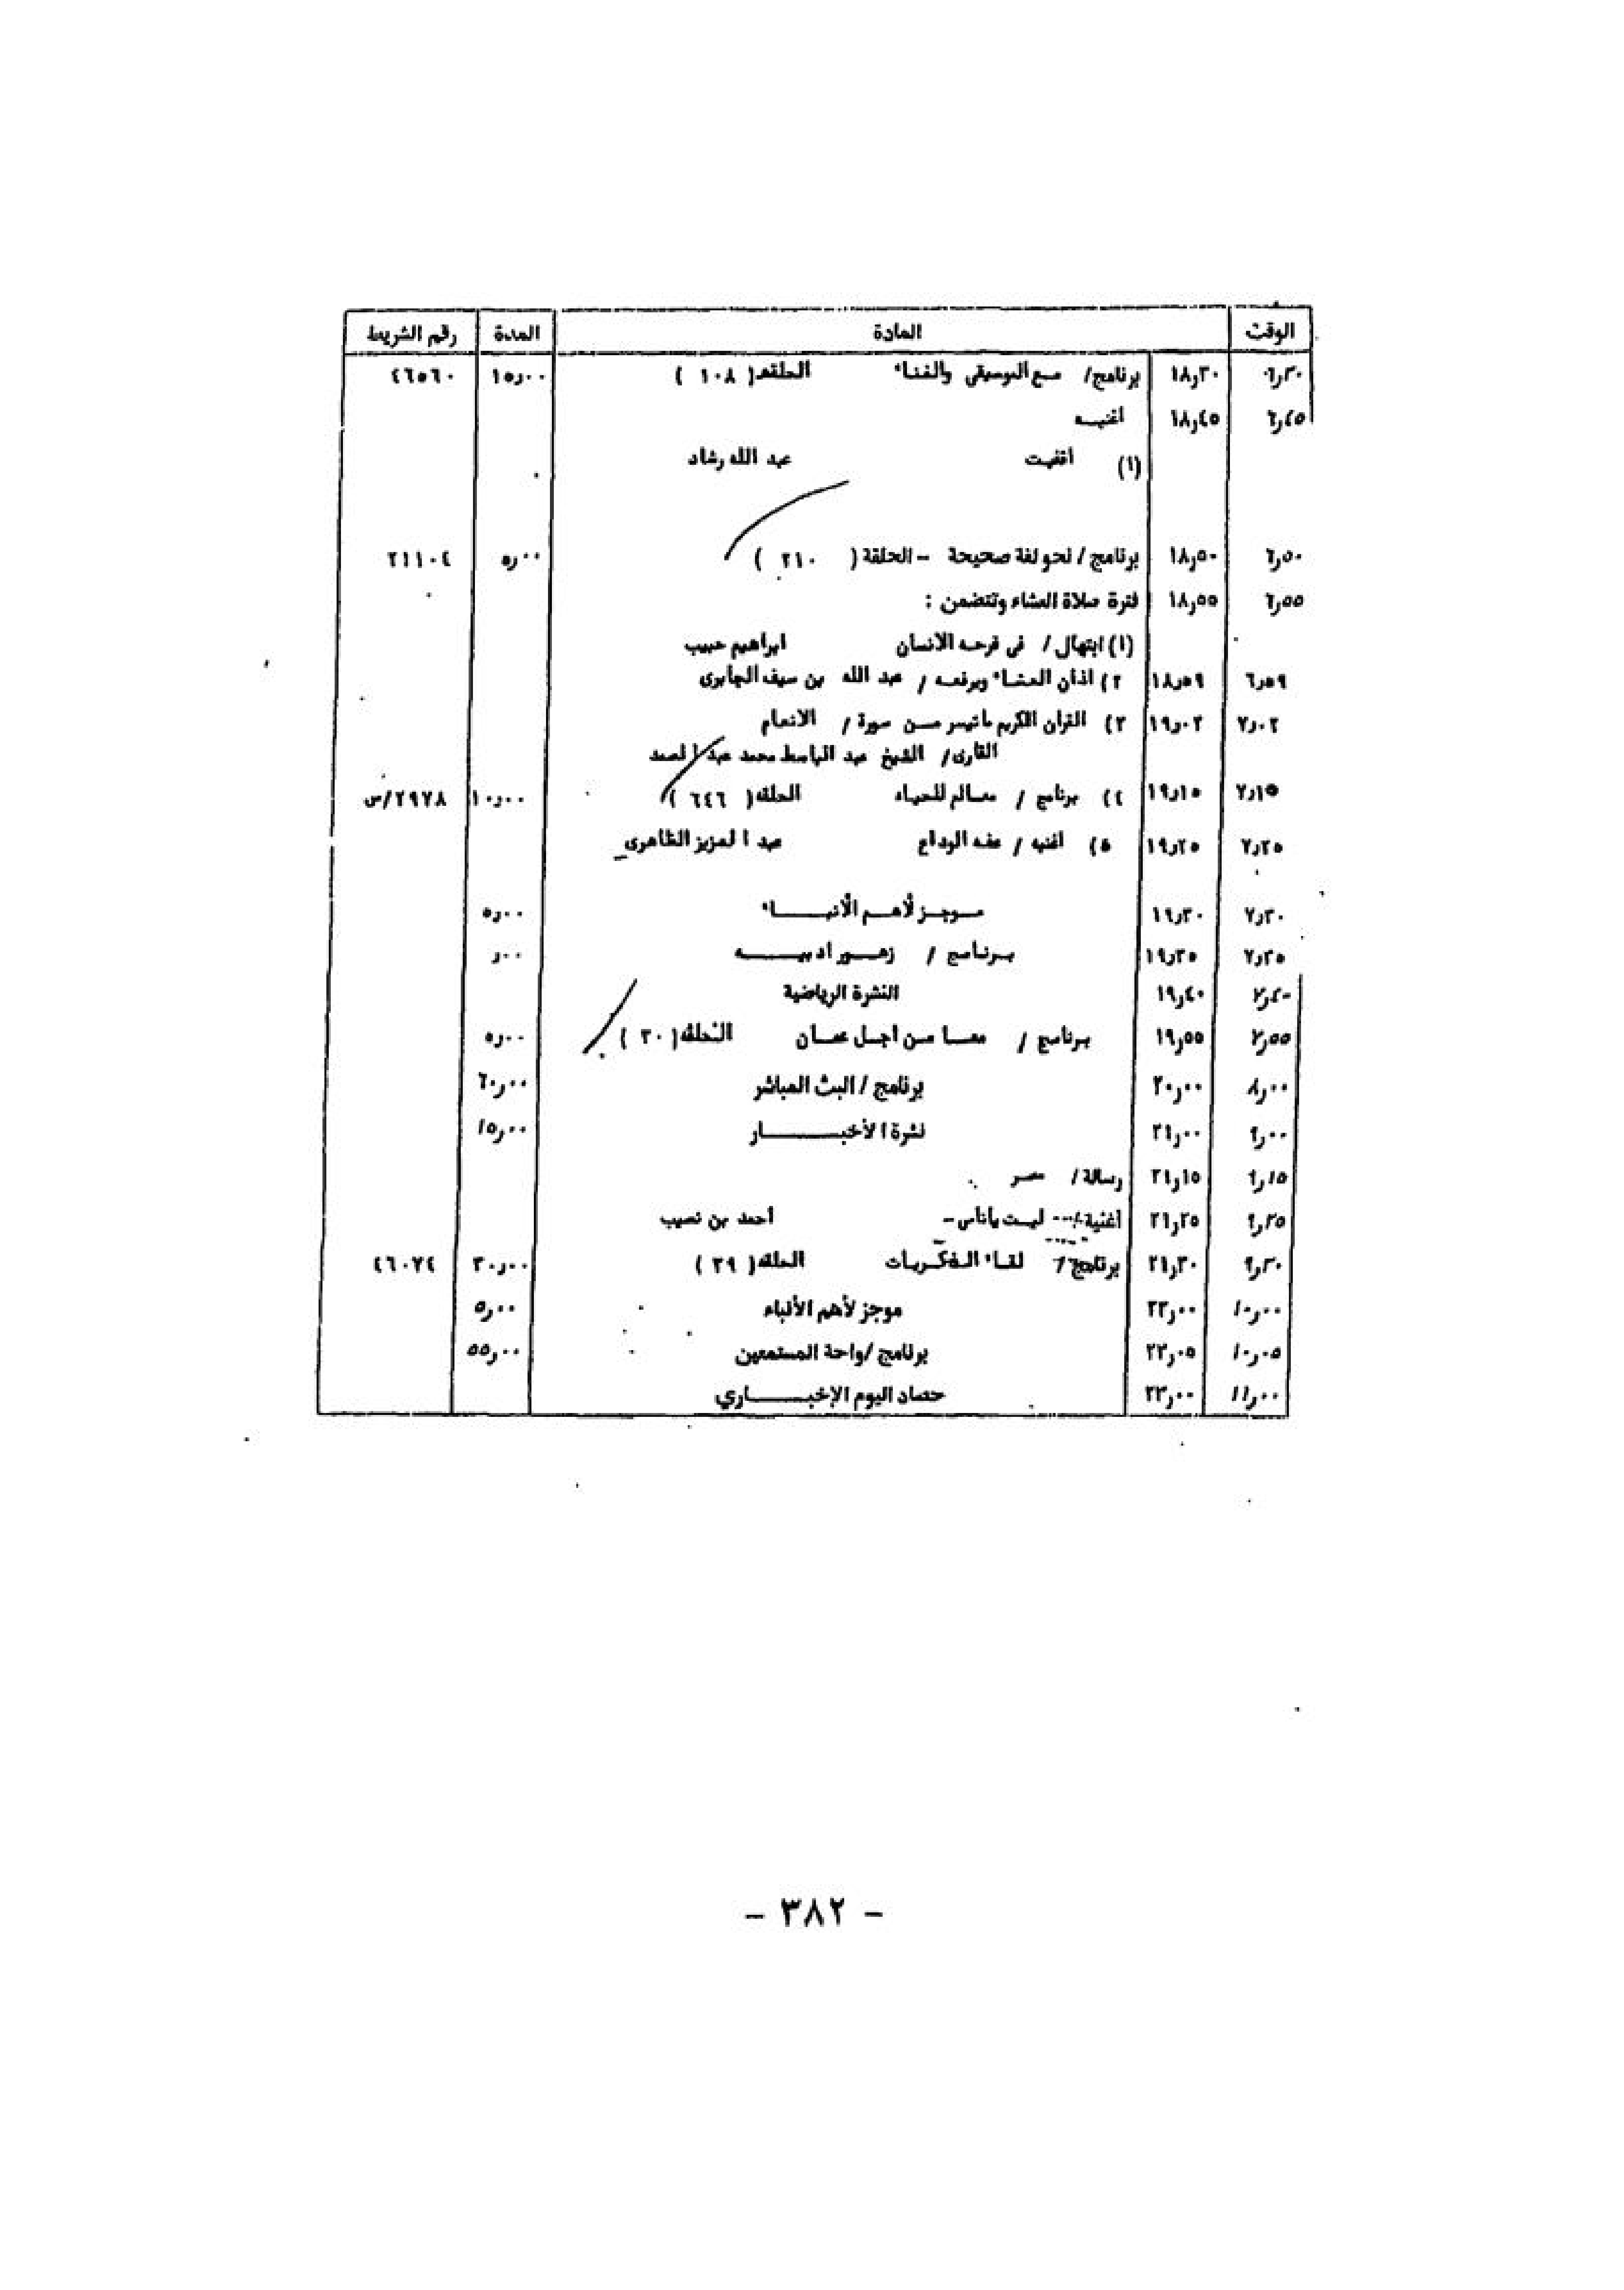 الوقت المادة المدة رقم الشريط
٦٫٣٠ ١٨٫٣٠ برنامج/ مع الموسيقى والغناء الحلقه( ١٠٨ ) ١٥٫٠٠ ٤٦٥٦٠
٦٫٤٥ ١٨٫٤٥ اغنيه
(١) عبد الله رشاد
٦٫٥٠ ١٨٫٥٠ برنامج / نحو لغة صحيحة - الحلقة ( ٢١٠ ) ٥٫٠٠ ٢١١٠٤
٦٫٥٥ ١٨٫٥٥ فترة صلاة العشاء وتتضمن :
(١) ابتهال / ابراهيم حبيب
٦٫٥٩ ١٨٫٥٩ ٢) اذان العشاء ويرفعه / عبد الله بن سيف الجابرى
٧٫٠٢ ١٩٫٠٢ ٣) القران الكريم ماتيسر من سورة / الانعام
القارى/ الشيخ عبد الباسط محمد عبد الصمد
٧٫١٥ ١٩٫١٥ ٤) برنامج / معالم للحياه الحلقه( ٦٤٦ ) ١٠٫٠٠ ٢٩٧٨/س
٧٫٢٥ ١٩٫٢٥ ٥) اغنيه / الوداع عبد العزيز الظاهرى
٧٫٣٠ ١٩٫٣٠ موجز لأهم الأنباء ٥٫٠٠
٧٫٣٥ ١٩٫٣٥ برنامج / زهور ادبيه ٫٠٠
٧٫٤٠ ١٩٫٤٠ النشرة الرياضية
٧٫٥٥ ١٩٫٥٥ برنامج / معا من اجل عمان الحلقه( ٣٠ ) ٥٫٠٠
٨٫٠٠ ٢٠٫٠٠ برنامج / البث المباشر ٦٠٫٠٠
٩٫٠٠ ٢١٫٠٠ نشرة الأخبـــــار ١٥٫٠٠
٩٫١٥ ٢١٫١٥ رسالة/ مصر
٩٫٢٥ ٢١٫٢٥ أغنية/ ليت ياناس- أحمد بن نصيب
٩٫٣٠ ٢١٫٣٠ برنامج/ لقاء الذكريات الحلقه( ٢٩ ) ٣٠٫٠٠ ٤٦٠٧٤
١٠٫٠٠ ٢٢٫٠٠ موجز لأهم الأنباء ٥٫٠٠
١٠٫٠٥ ٢٢٫٠٥ برنامج /واحة المستمعين ٥٥٫٠٠
١١٫٠٠ ٢٣٫٠٠ حصاد اليوم الإخبـــــاري
- ٣٨٢ -